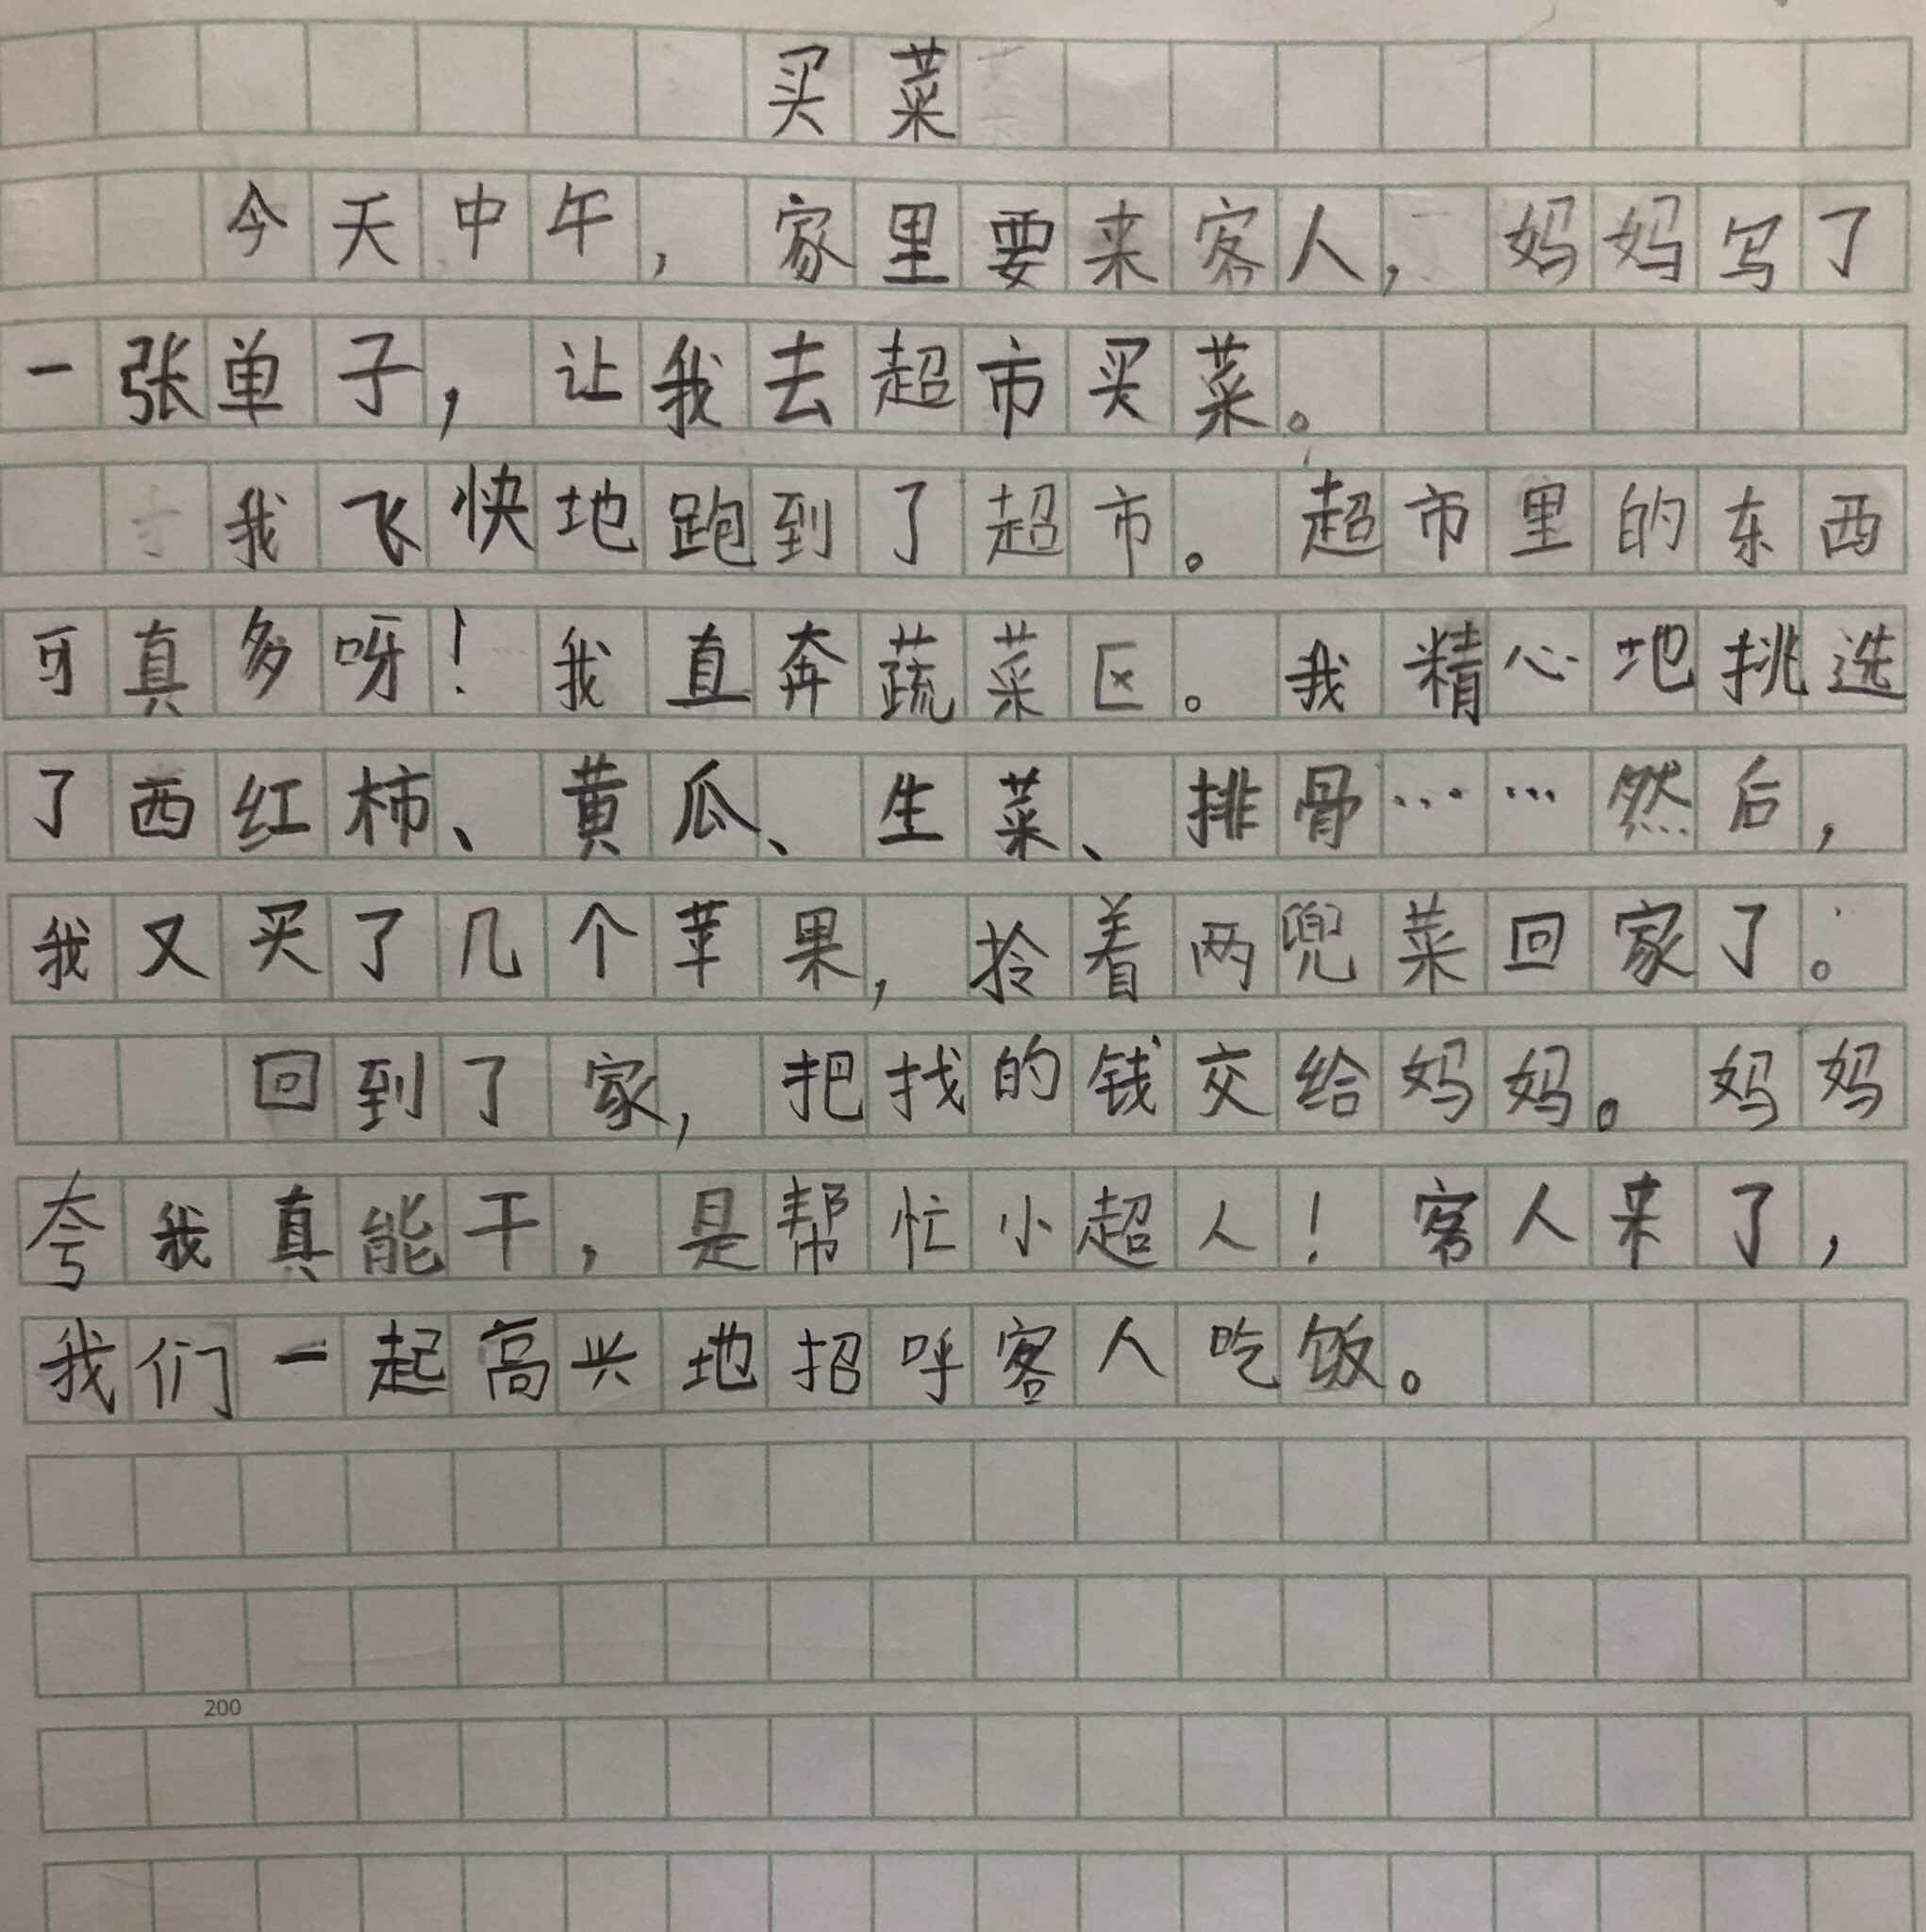 买菜
今天中午，家里要来客人，妈妈写了
一张单子，让我去超市买菜。
我飞快地跑到了超市。超市里的东西
可真多呀！我直奔蔬菜区。我精心地挑选
了西红柿、黄瓜、生菜、排骨……然后，
我又买了几个苹果，拎着两兜菜回家了。
回到了家，把找的钱交给妈妈。妈妈
夸我真能干，是帮忙小超人！客人来了，
我们一起高兴地招呼客人吃饭。
200